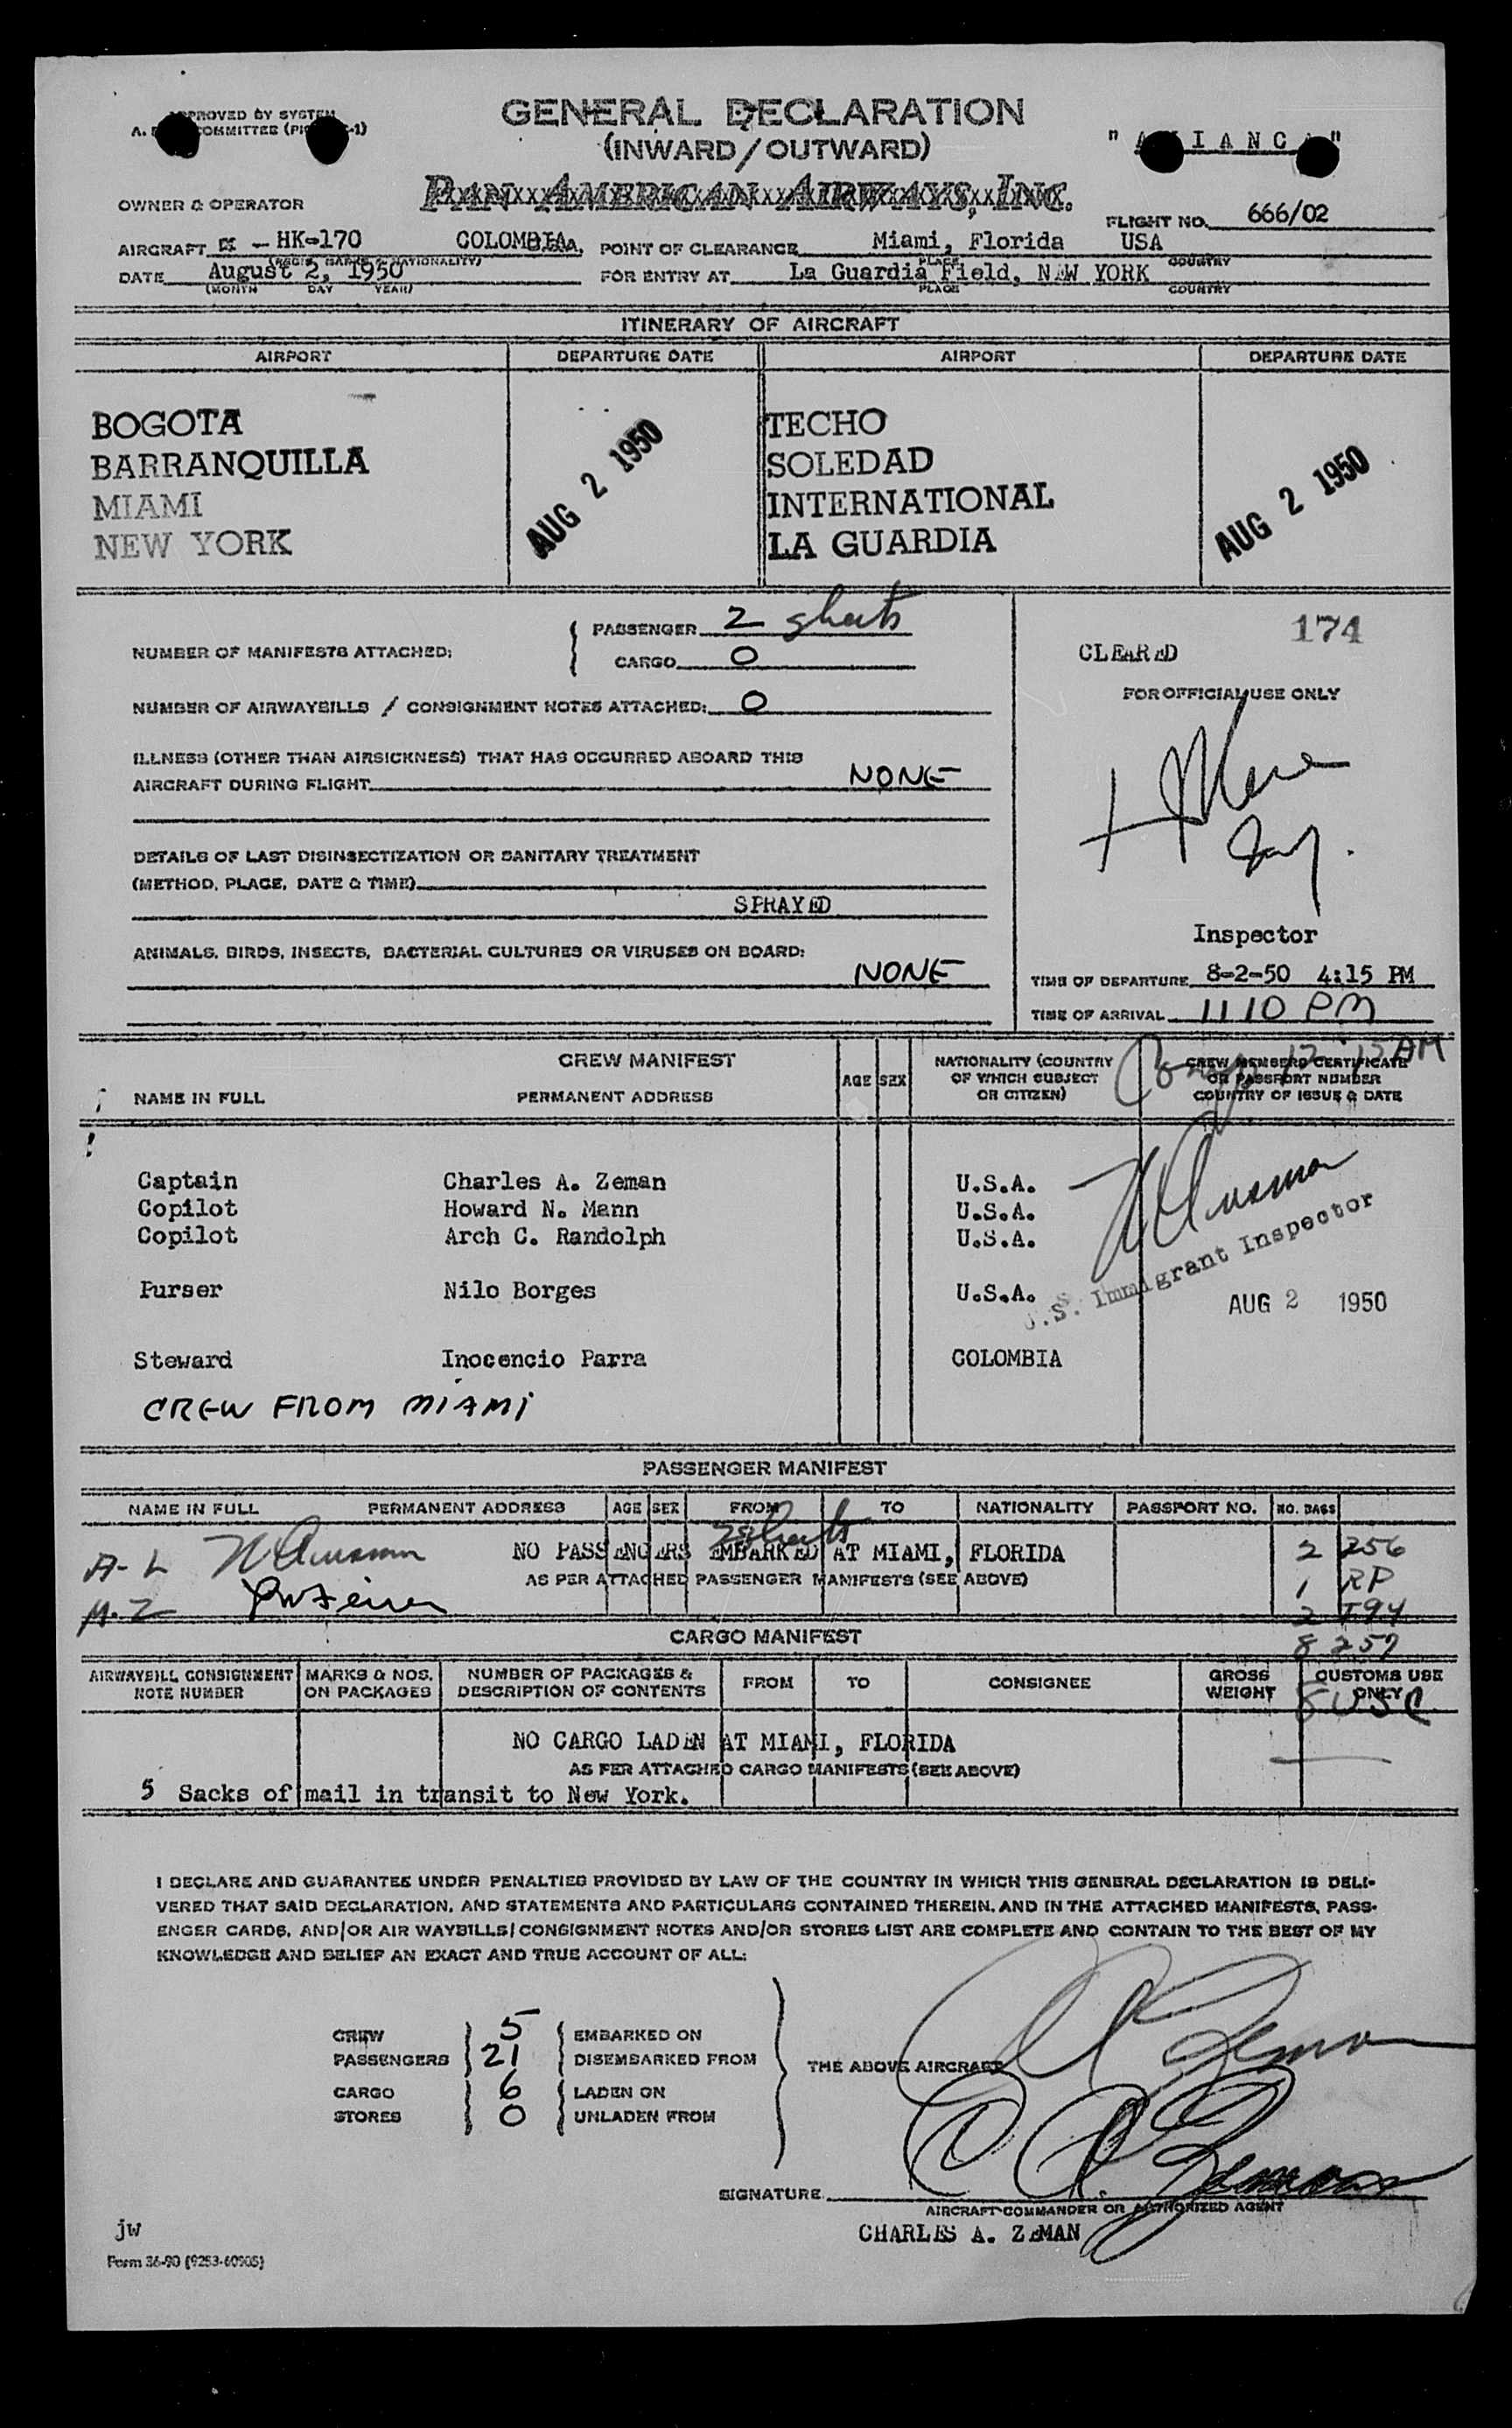 APPROVED BY SYSTEM
COMMITTEE
GENERAL DECLARATION
(INWARD/OUTWARD)
PAN AMERICAN AIRWAYS, INC.
OWNER & OPERATOR
FLIGHT NO. 666/02
AIRCRAFT - HK-170 COLOMBIA POINT OF CLEARANCE Miami, Florida USA
(REGIS. MARKS & NATIONALITY) PLACE COUNTRY
DATE August 2, 1950 FOR ENTRY AT La Guardia Field, NEW YORK
(MONTH DAY YEAR) PLACE COUNTRY
ITINERARY OF AIRCRAFT
AIRPORT DEPARTURE DATE AIRPORT DEPARTURE DATE
BOGOTA TECHO
BARRANQUILLA SOLEDAD
MIAMI INTERNATIONAL
NEW YORK LA GUARDIA
AUG 2 1950 AUG 2 1950
NUMBER OF MANIFESTS ATTACHED: PASSENGER 2 sheets
CARGO 0
NUMBER OF AIRWAYBILLS / CONSIGNMENT NOTES ATTACHED: 0
ILLNESS (OTHER THAN AIRSICKNESS) THAT HAS OCCURRED ABOARD THIS
AIRCRAFT DURING FLIGHT NONE
DETAILS OF LAST DISINSECTIZATION OR SANITARY TREATMENT
(METHOD, PLACE, DATE & TIME)
SPRAYED
ANIMALS, BIRDS, INSECTS, BACTERIAL CULTURES OR VIRUSES ON BOARD:
NONE
174
CLEARED
FOR OFFICIAL USE ONLY
Inspector
TIME OF DEPARTURE 8-2-50 4:15 PM
TIME OF ARRIVAL 11 10 PM
CREW MANIFEST
NAME IN FULL PERMANENT ADDRESS AGE SEX NATIONALITY (COUNTRY
OF WHICH SUBJECT
OR CITIZEN)
CREW MEMBERS CERTIFICATE
OR PASSPORT NUMBER
COUNTRY OF ISSUE & DATE
Captain Charles A. Zeman U.S.A.
Copilot Howard N. Mann U.S.A.
Copilot Arch C. Randolph U.S.A.
Purser Nilo Borges U.S.A.
Steward Inocencio Parra COLOMBIA
U.S. Immigrant Inspector
AUG 2 1950
CREW FROM MIAMI
PASSENGER MANIFEST
NAME IN FULL PERMANENT ADDRESS AGE SEX FROM TO NATIONALITY PASSPORT NO. NO. BAGS
2 sheets
NO PASSENGERS EMBARKED AT MIAMI, FLORIDA 2 256
AS PER ATTACHED PASSENGER MANIFESTS (SEE ABOVE) 1 RP
2 T94
8 257
8 USC
CARGO MANIFEST
AIRWAYBILL CONSIGNMENT
NOTE NUMBER
MARKS & NOS.
ON PACKAGES
NUMBER OF PACKAGES &
DESCRIPTION OF CONTENTS
FROM TO CONSIGNEE
GROSS
WEIGHT
CUSTOMS USE
ONLY
NO CARGO LADEN AT MIAMI, FLORIDA
AS PER ATTACHED CARGO MANIFESTS (SEE ABOVE)
5 Sacks of mail in transit to New York.
I DECLARE AND GUARANTEE UNDER PENALTIES PROVIDED BY LAW OF THE COUNTRY IN WHICH THIS GENERAL DECLARATION IS DELI-
VERED THAT SAID DECLARATION, AND STATEMENTS AND PARTICULARS CONTAINED THEREIN, AND IN THE ATTACHED MANIFESTS, PASS-
ENGER CARDS, AND/OR AIR WAYBILLS/CONSIGNMENT NOTES AND/OR STORES LIST ARE COMPLETE AND CONTAIN TO THE BEST OF MY
KNOWLEDGE AND BELIEF AN EXACT AND TRUE ACCOUNT OF ALL:
CREW 5 EMBARKED ON
PASSENGERS 21 DISEMBARKED FROM
CARGO 6 LADEN ON
STORES 0 UNLADEN FROM
THE ABOVE AIRCRAFT
SIGNATURE C A Zeman
AIRCRAFT COMMANDER OR AUTHORIZED AGENT
CHARLES A. ZEMAN
jw
Form 36-90 (9253-60905)